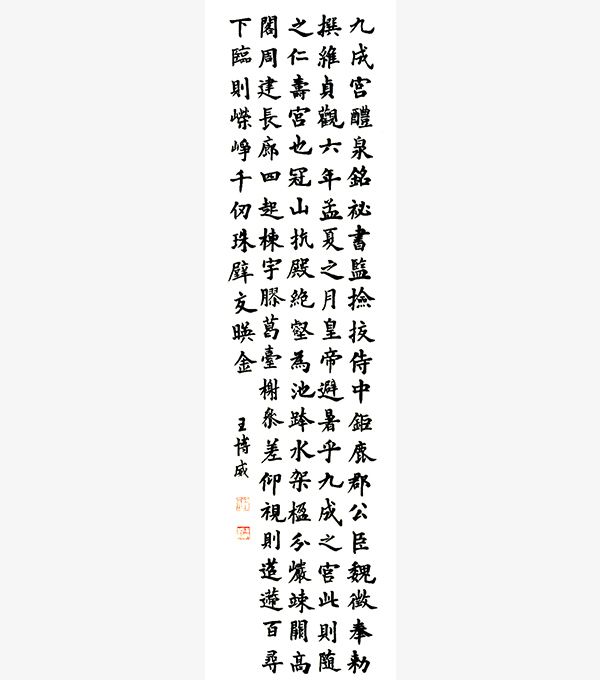 九成宮醴泉銘祕書監撿挍侍中鉅鹿郡公臣魏徵奉勅
撰維貞觀六年孟夏之月皇帝避暑乎九成之宮此則隨
之仁壽宮也冠山抗殿絶壑為池跨水架楹分巖竦闕高
閣周建長廊四起棟宇膠葛臺榭參差仰視則迢遰百尋
下臨則嶸崢千仞珠璧交暎金
王博威